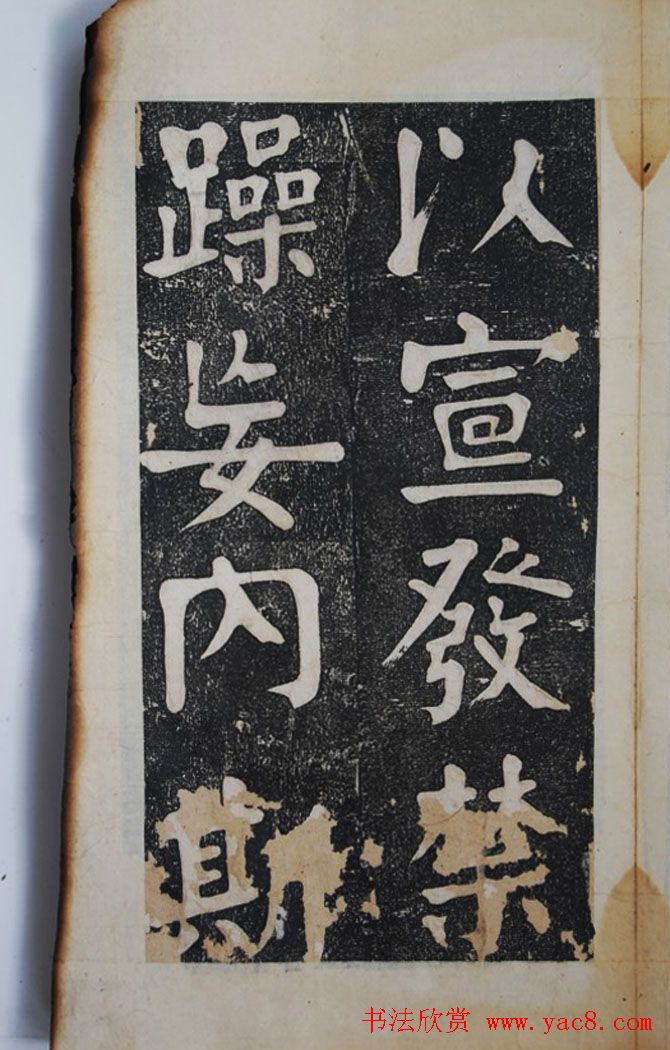 以宣發禁
躁妄内斯
书法欣赏 www.yac8.com